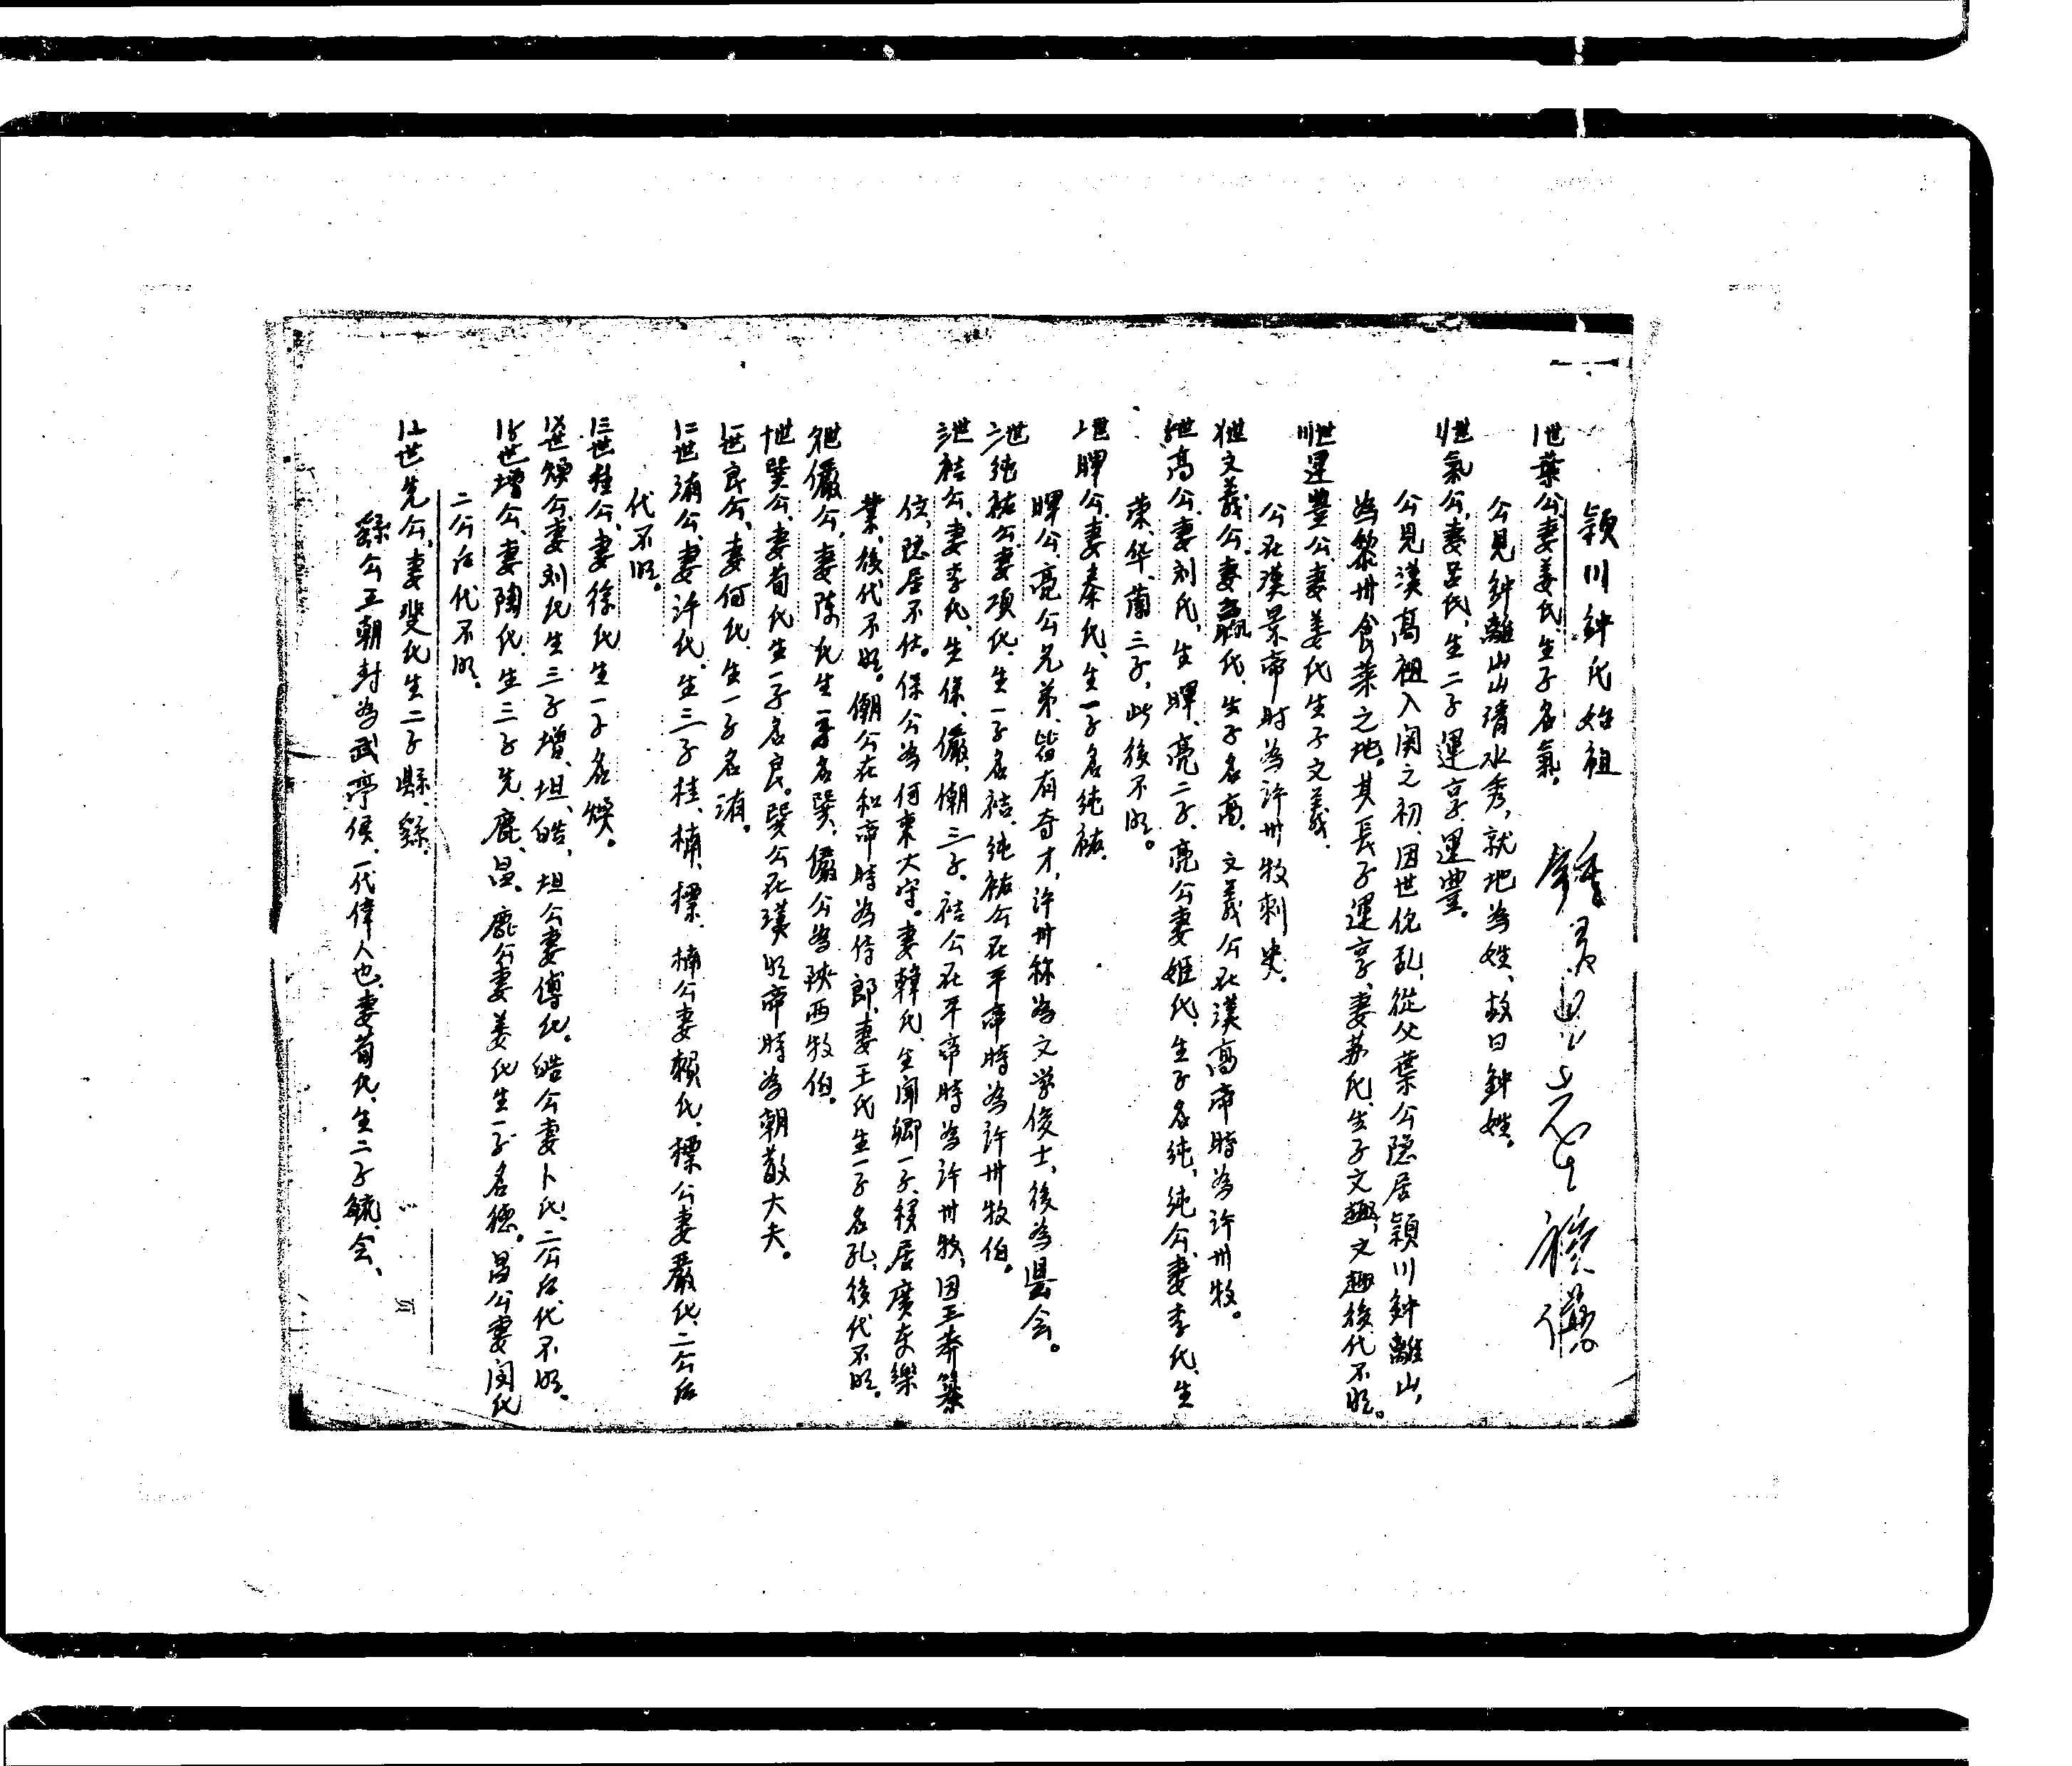 穎川鈡氏始祖
1世葉公,妻姜氏,生子名氣。
公見鈡離山山清水秀,就地為姓,故曰鈡姓。
氣公,妻呂氏,生二子運享.運豐。
公見漢高祖入関之初,因世俗乱,從父葉公隐居穎川鈡離山,
為黎州食菜之地。其長子運享,妻苏氏,生子文趣,文趣後代不明。
運豐公,妻姜氏生子文義.
公在漢景帝时為許州牧刺史。
文義公,妻氏,生子名高.文義公在漢高帝時為許州牧。
高公,妻刘氏,生暉、亮二子.亮公妻姬氏.生子名純,純公妻李氏,生
荣、华、蘭三子,此後不明。
暉公,妻秦氏,生一子名純祐.
暉公、亮公兄弟,皆有奇才,許州称為文学俊士,後為县会。
純祐公.妻項氏.生一子名祜.純祐公在平帝時為許州牧伯。
祜公.妻李氏,生保、儼、僩三子。祜公在平帝時為許州牧,因王莽篡
位,隐居不仕。保公為何東大守。妻韓氏,生聞卿一子,移居廣东樂
業,後代不明。僩公在和帝時為侍郎,妻王氏生一子名孔,後代不明。
儼公,妻陈氏生一子名巽,儼公為陝西牧伯.
十世巽公,妻荀氏生一子名良。巽公在漢明帝時為朝散大夫。
良公,妻何氏.生一子名洧。
1二世洧公,妻許氏.生三子桂、楠、標.楠公妻賴氏,標公妻嚴氏.二公后
代不明。
1三世桂公,妻徐氏生一子名煥。
煥公,妻刘氏生三子增、坦、皓,坦公妻傅氏。皓公妻卜氏.二公后代不明。
世增公,妻陶氏.生三子先、鹿、昌。鹿公妻姜氏生一子名德。昌公妻闵氏
二公后代不明.
世先公,妻斐氏生二子縣、繇.
繇公王朝封為武亭侯,一代偉人也,妻荀氏,生二子毓、会、